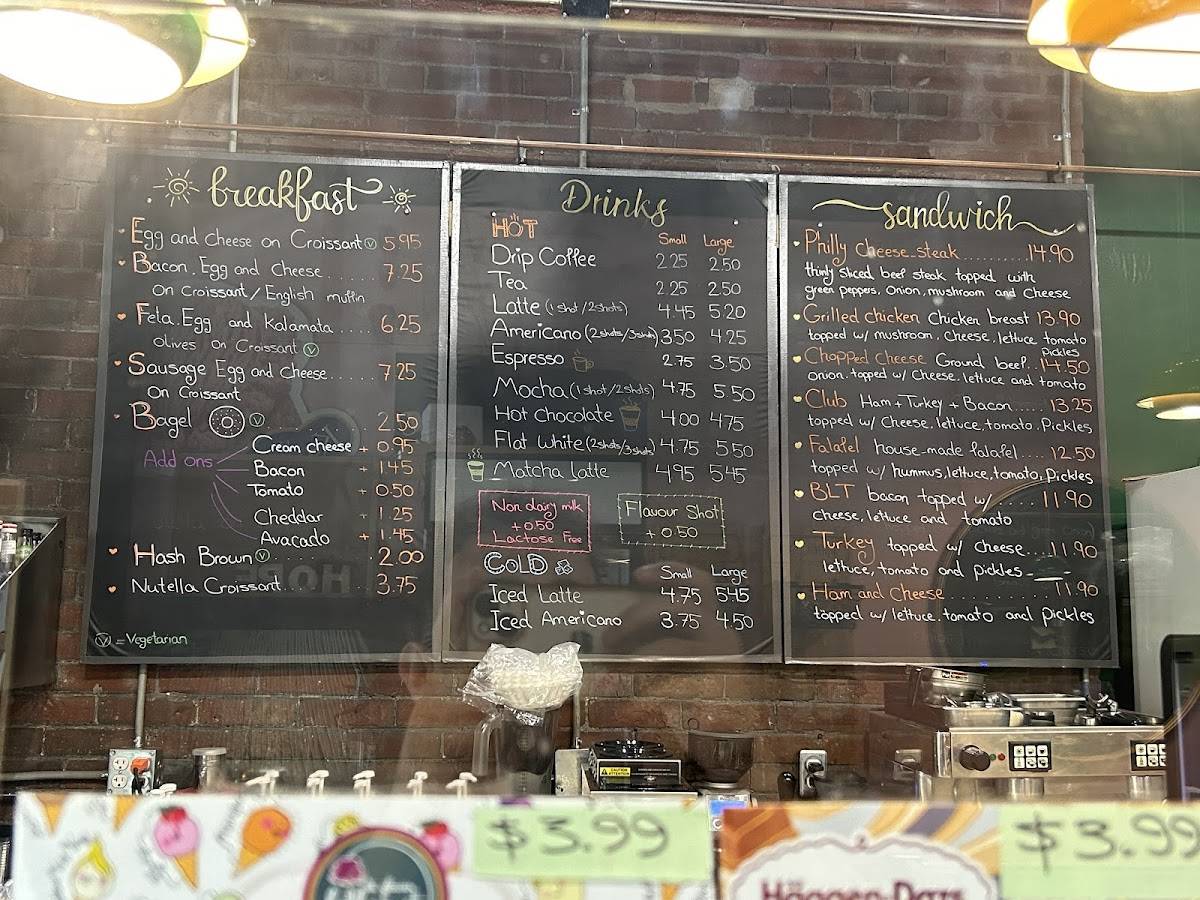 breakfast
Egg and Cheese on Croissant Ⓥ 5.95
Bacon. Egg and Cheese...... 7.25
On Croissant / English muffin
Feta. Egg and Kalamata..... 6.25
Olives on Croissant Ⓥ
Sausage Egg and Cheese...... 7.25
On Croissant
Bagel Ⓥ 2.50
Add ons
Cream cheese + 0.95
Bacon + 1.45
Tomato + 0.50
Cheddar + 1.25
Avacado + 1.45
Hash Brown Ⓥ 2.00
Nutella Croissant.... 3.75
Ⓥ = Vegetarian
Drinks
HOT
Small Large
Drip Coffee 2.25 2.50
Tea 2.25 2.50
Latte (1 shot / 2 shots) 4.45 5.20
Americano (2 shots / 3 shots) 3.50 4.25
Espresso 2.75 3.50
Mocha (1 shot / 2 shots) 4.75 5.50
Hot chocolate 4.00 4.75
Flat white (2 shots / 3 shots) 4.75 5.50
Matcha latte 4.95 5.45
Non dairy milk
+ 0.50
Lactose Free
Flavour Shot
+ 0.50
COLD
Small Large
Iced Latte 4.75 5.45
Iced Americano 3.75 4.50
sandwich
Philly cheese-steak.......... 14.90
thinly sliced beef steak topped with
green peppers, Onion, mushroom and Cheese
Grilled chicken Chicken breast 13.90
topped w/ mushroom, Cheese, lettuce tomato
Pickles
Chopped Cheese Ground beef.. 14.50
onion, topped w/ Cheese, lettuce and tomato
Club Ham + Turkey + Bacon..... 13.25
topped w/ Cheese, lettuce, tomato, Pickles
Falafel house-made falafel.... 12.50
topped w/ hummus, lettuce, tomato, Pickles
BLT bacon topped w/ 11.90
Cheese, lettuce and tomato
Turkey topped w/ Cheese.... 11.90
lettuce, tomato and pickles
Ham and Cheese............ 11.90
topped w/ lettuce, tomato and Pickles
CAUTION
$3.99
$3.99
Häagen-Dazs